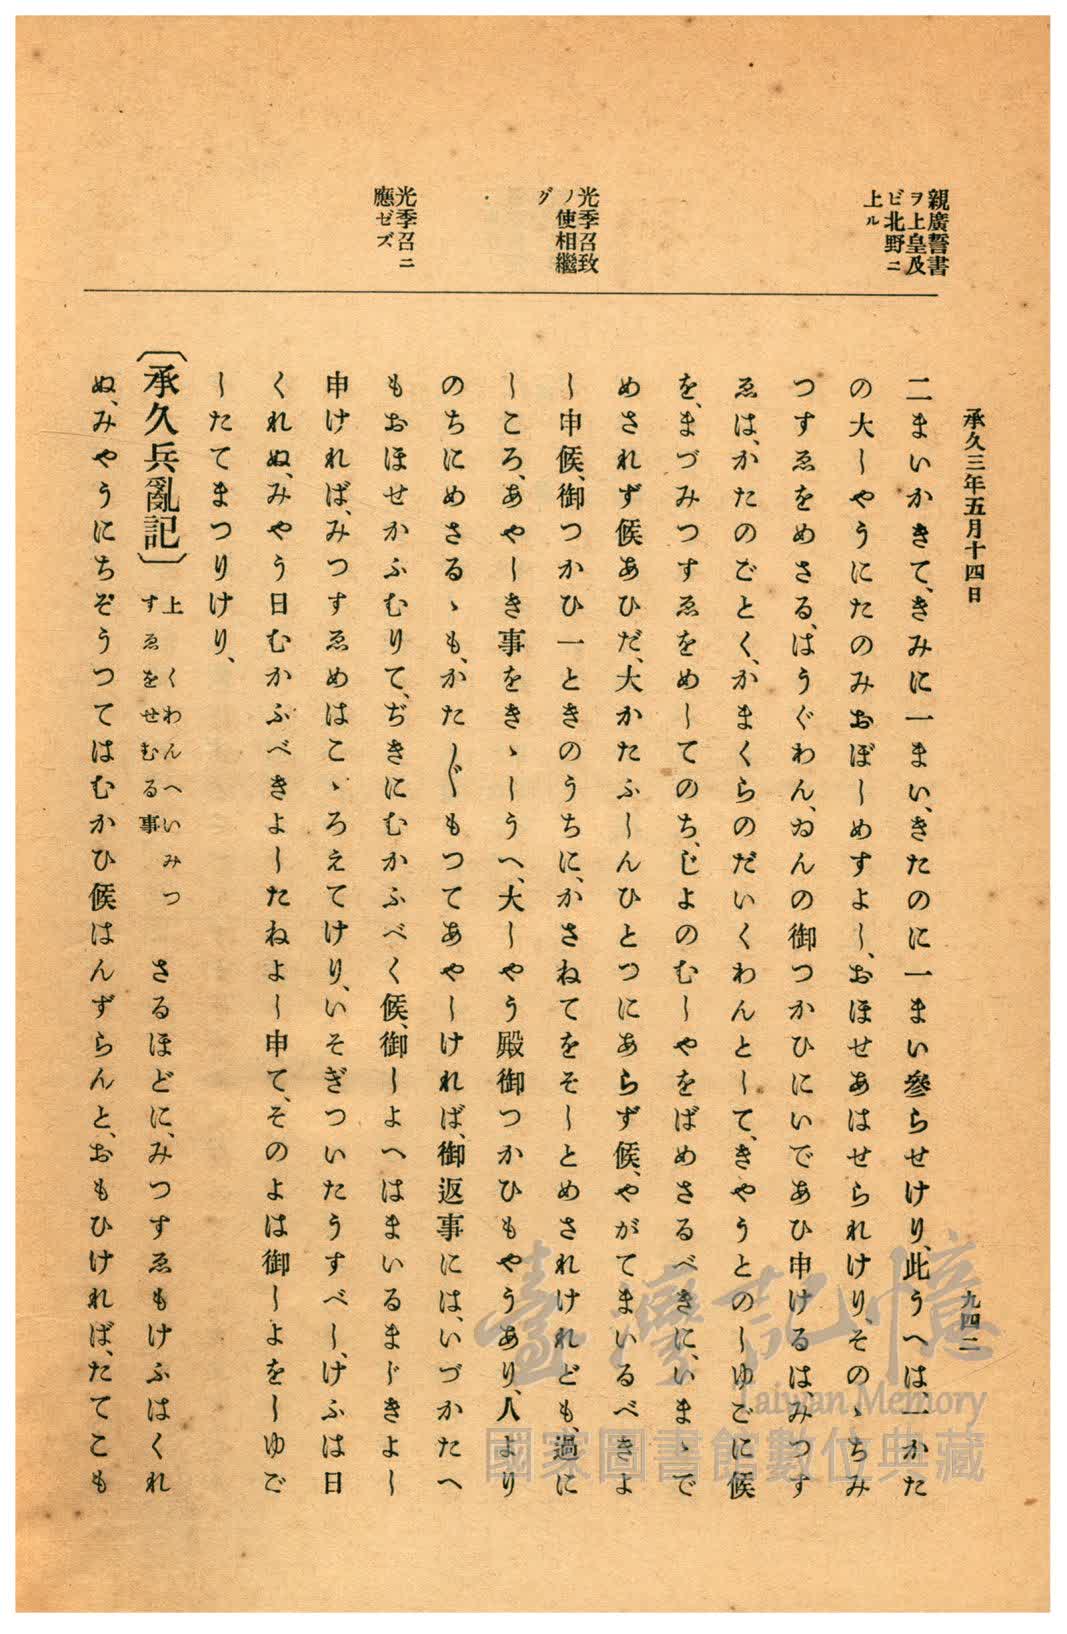 承久三年五月十四日
九四二
親廣誓書
ヲ上皇及
ビ北野ニ
上ル
光季召致
ノ使相繼
グ
光季召ニ
應ゼズ
二まいかきて、きみに一まい、きたのに一まい參らせけり、此うへは、一かた
の大しやうにたのみおぼしめすよし、おほせあはせられけり、そのゝちみ
つすゑをめさる、はうぐわん、ゐんの御つかひにいであひ申けるは、みつす
ゑは、かたのごとく、かまくらのだいくわんとして、きやうとのしゆごに候
を、まづみつすゑをめしてのち、じよのむしやをばめさるべきに、いまゝで
めされず候あひだ、大かたふしんひとつにあらず候、やがてまいるべきよ
し申候、御つかひ一ときのうちに、かさねてをそしとめされけれども、過に
しころ、あやしき事をきゝしうへ、大しやう殿御つかひもやうあり、人より
のちにめさるゝも、かた〴〵もつてあやしければ、御返事には、いづかたへ
もおほせかふむりて、ぢきにむかふべく候、御しよへはまいるまじきよし
申ければ、みつすゑめはこゝろえてけり、いそぎついたうすべし、けふは日
くれぬ、みやう日むかふべきよしたねよし申て、そのよは御しよをしゆご
したてまつりけり、
〔承久兵亂記〕上 くわんへいみつすゑをせむる事 さるほどに、みつすゑもけふはくれ
ぬ、みやうにちぞうつてはむかひ候はんずらんと、おもひければ、たてこも
臺灣記憶
Taiwan Memory
國家圖書館數位典藏